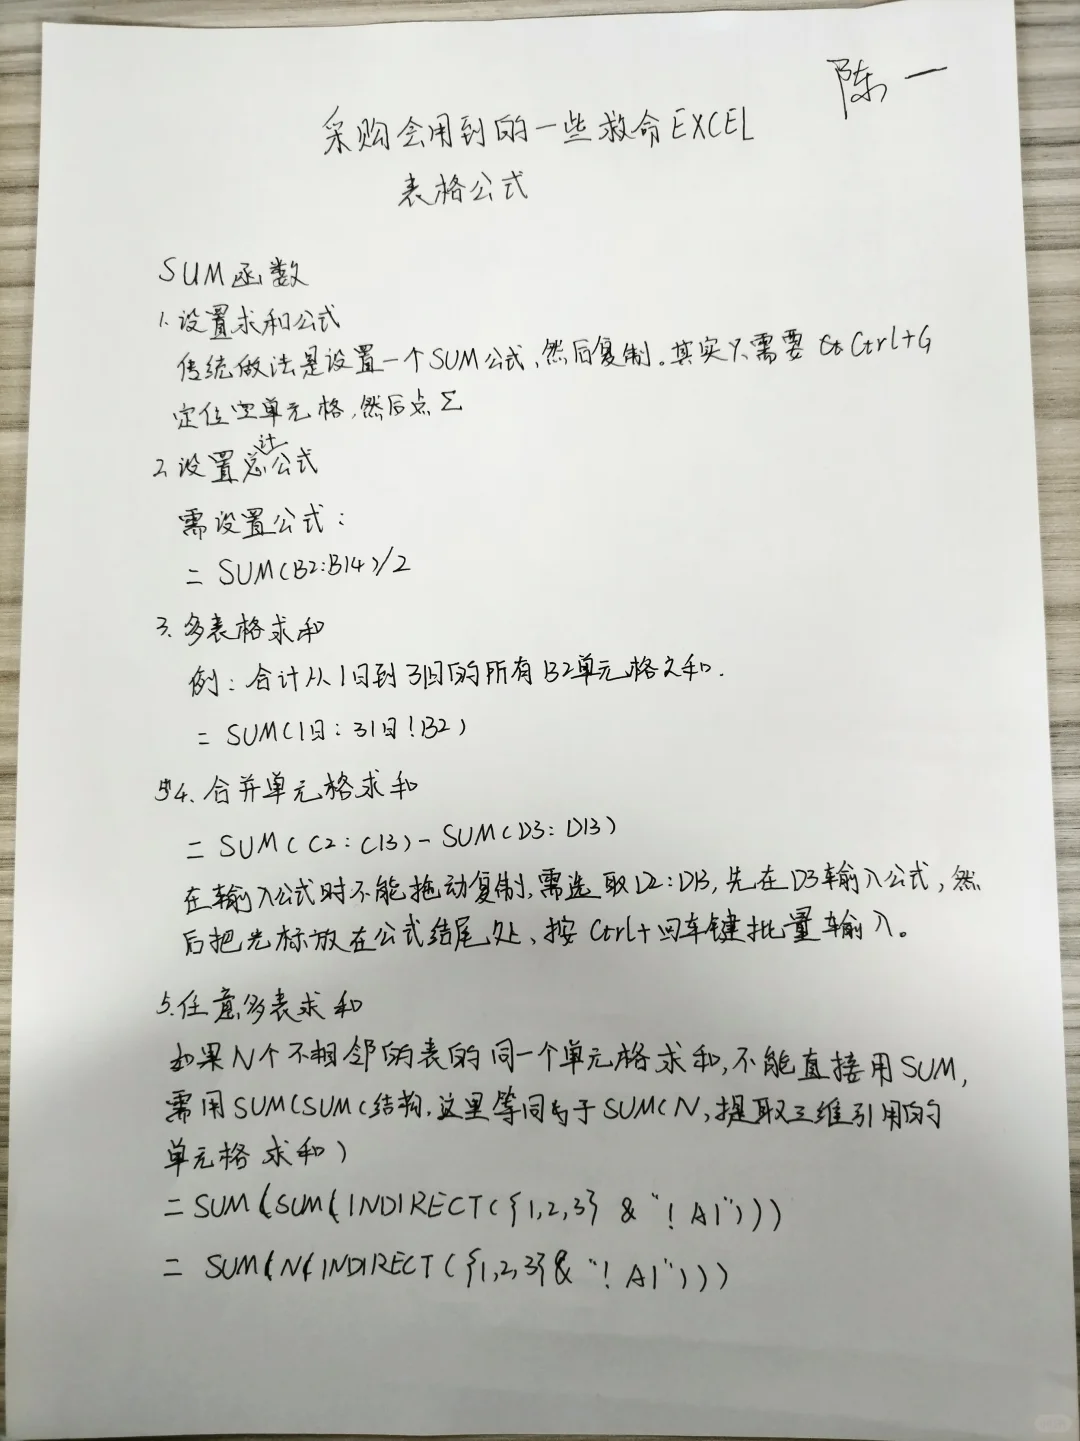 陈一
采购会用到的一些救命EXCEL
表格公式
SUM函数
1.设置求和公式
传统做法是设置一个SUM公式,然后复制。其实只需要 Ctrl+G
定位空单元格,然后点Σ
2.设置总计公式
需设置公式:
= SUM(B2:B14)/2
3.多表格求和
例:合计从1日到31日的所有B2单元格之和.
= SUM(1日:31日!B2)
4.合并单元格求和
= SUM(C2:C13)-SUM(D3:D13)
在输入公式时不能拖动复制,需选取D2:D13,先在D3输入公式,然
后把光标放在公式结尾处,按Ctrl+回车键批量输入。
5.任意多表求和
如果N个不相邻的表的同一个单元格求和,不能直接用SUM,
需用SUM(SUM(结构,这里等同于SUM(N,提取三维引用的
单元格求和)
=SUM(SUM(INDIRECT({1,2,3}&"!A1")))
= SUM(N(INDIRECT({1,2,3}&"!A1")))